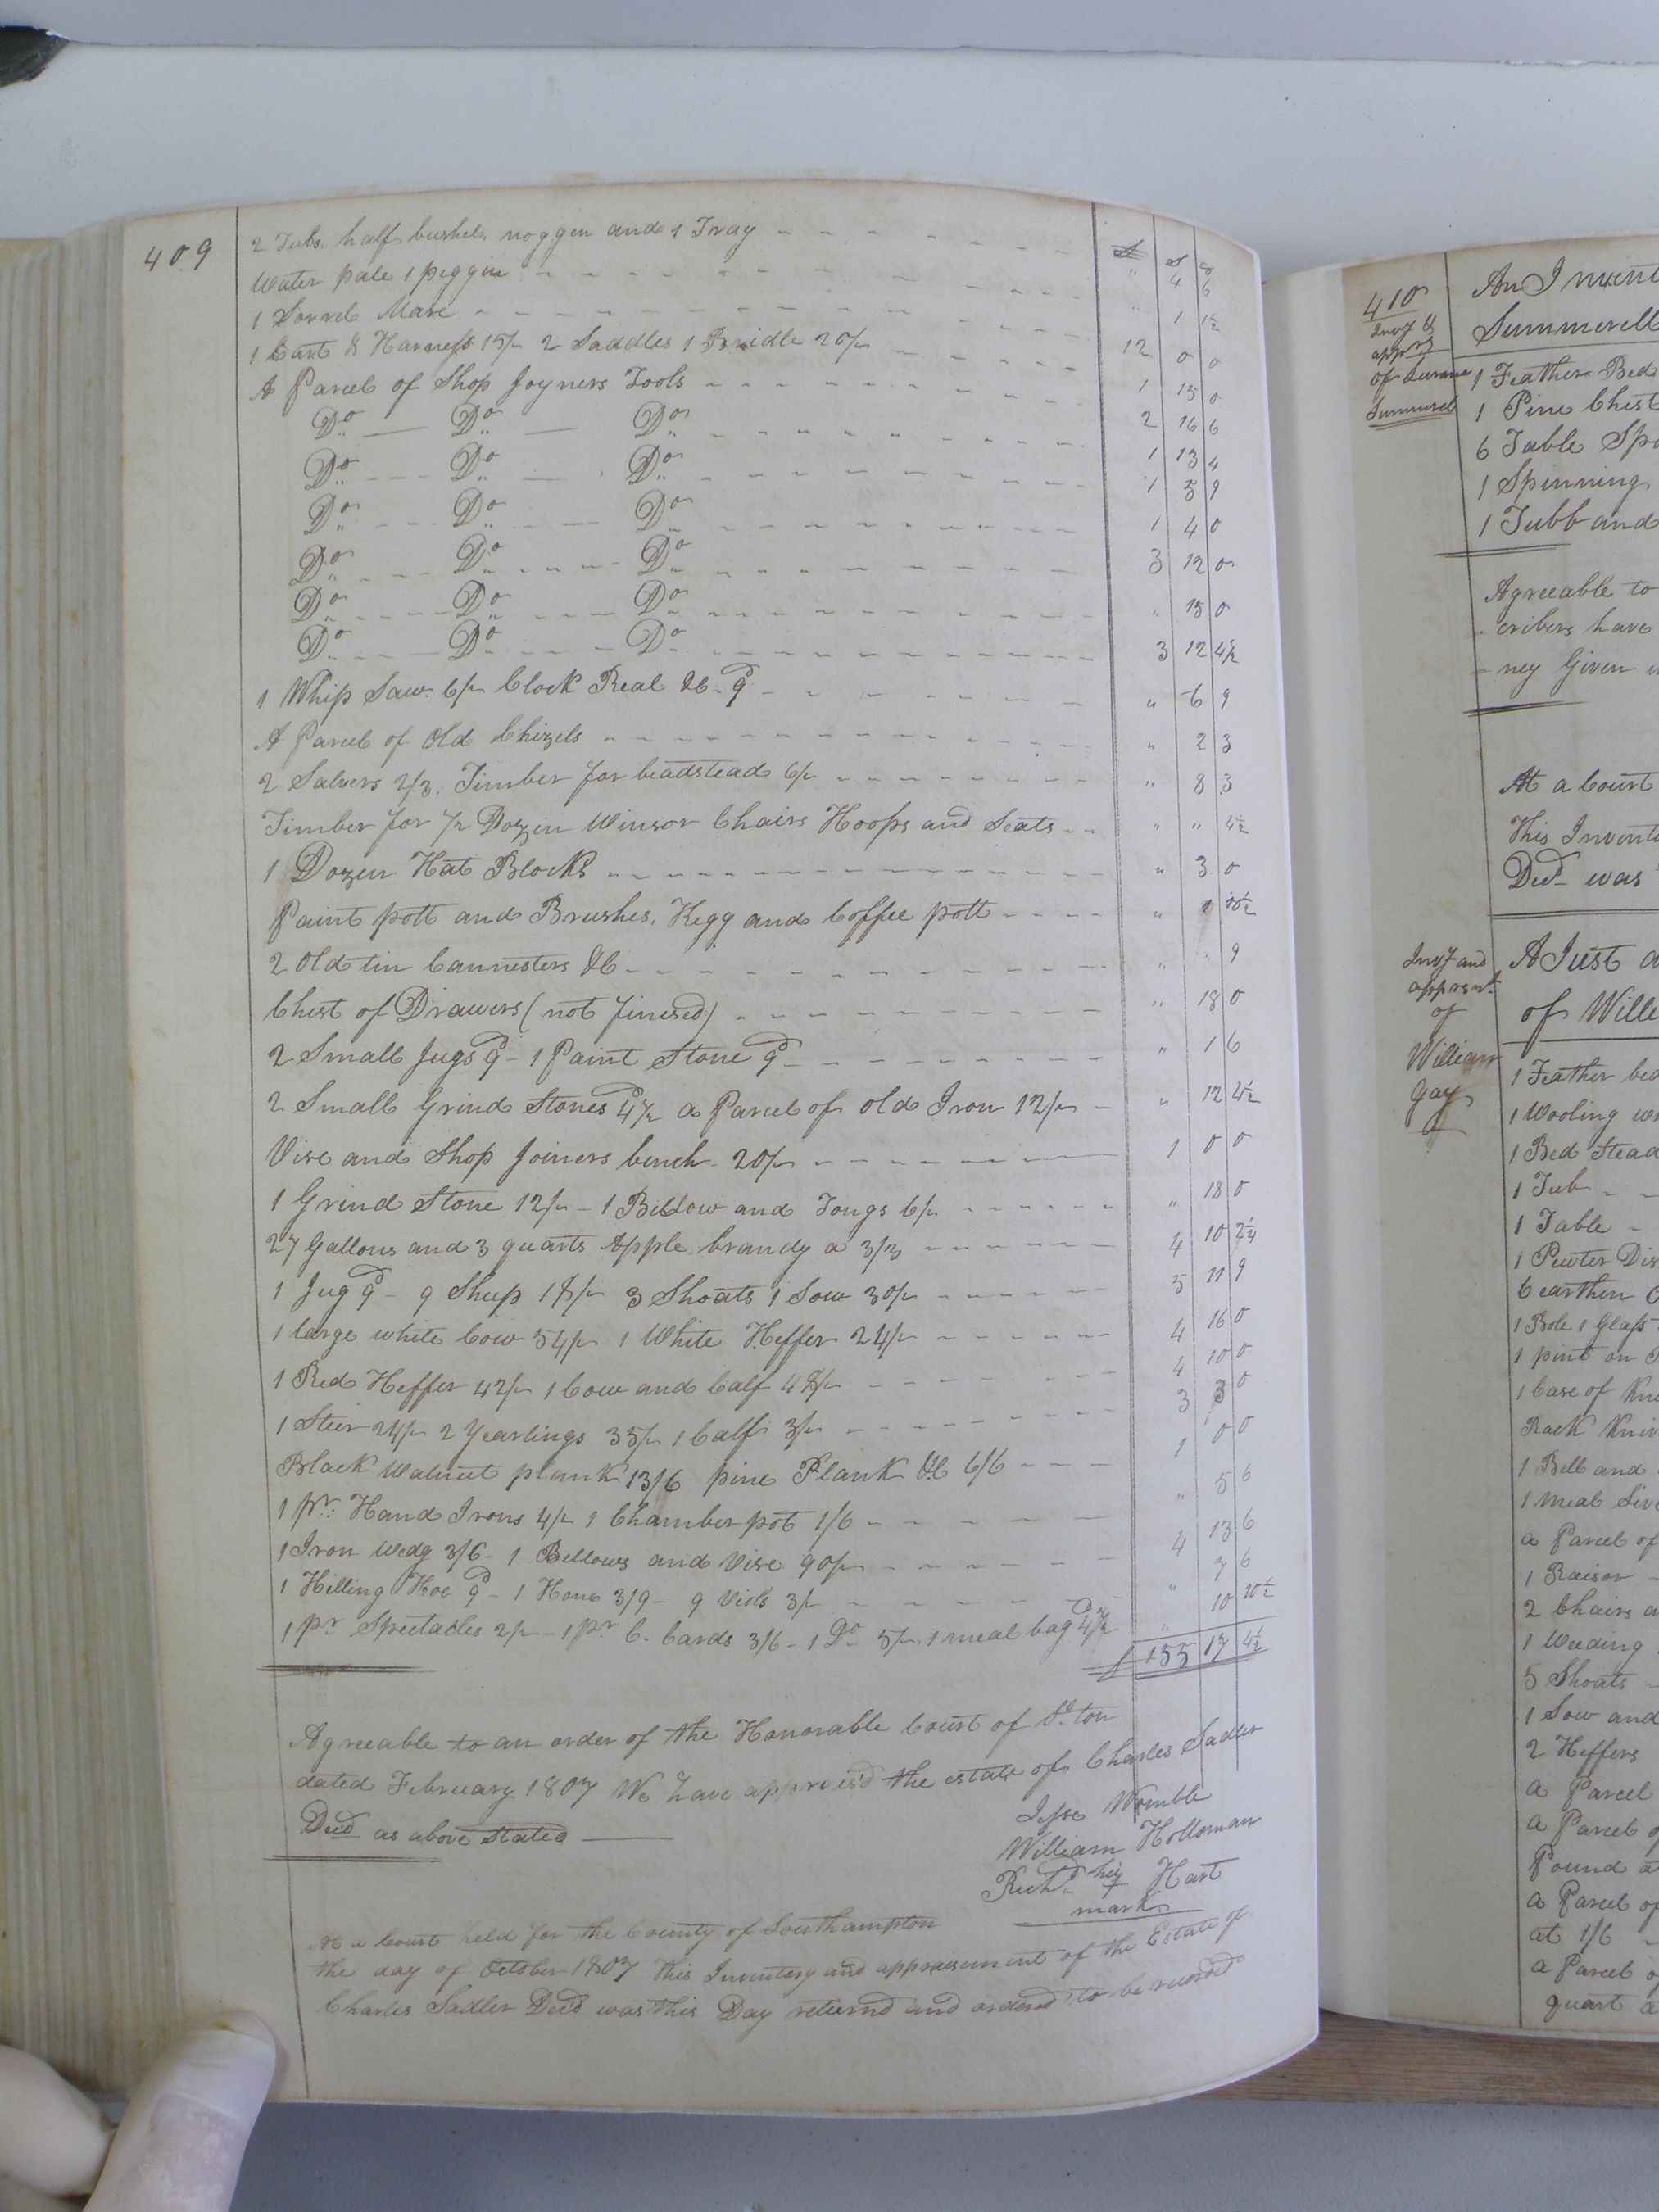 409
£ s d
2 Tubs, half bushel, noggin and 1 Tray - - - " 4 6
Water pale 1 piggin - - - " 1 1½
1 Sorrel Mare - - - 12 0 0
1 Cart & Harness 15/- 2 Saddles 1 Bridle 20/- - - - 1 15 0
A Parcel of Shop Joyners Tools - - - 2 16 6
Do — Do — Do - - - 1 13 4
Do — Do — Do - - - 1 5 9
Do — Do — Do - - - 1 4 0
Do — Do — Do - - - 3 12 0
Do — Do — Do - - - " 15 0
Do — Do — Do - - - 3 12 4½
1 Whip Saw 6/- Clock Real &C 9d - - - " 6 9
A Parcel of Old Chizels - - - " 2 3
2 Salvers 2/3. Timber for beadstead 6/- - - - " 8 3
Timber for ½ Dozin Winsor Chairs Hoops and Seats - - " " 4½
1 Dozen Hat Blocks - - - " 3 0
Paint pott and Brushes, Kegg and Coffee pott - - - " 1 10½
2 Old tin Cannesters &C - - - " " 9
Chest of Drawers (not finesed) - - - " 18 0
2 Small Jugs 9d - 1 Paint Stone 9d - - - " 1 6
2 Small Grind Stones 4½d a Parcel of old Iron 12/- - " 12 4½
Vise and Shop Joiners bench 20/- - - - 1 0 0
1 Grind Stone 12/- - 1 Bellow and Tongs 6/- - - - " 18 0
27 Gallons and 3 quarts Apple brandy a 3/3 - - - 4 10 2¼
1 Jug 9d - 9 Sheep 3 Shoats 1 Sow 30/- - - - 5 11 9
1 large white Cow 54/- 1 White Heffer 24/- - - - 4 16 0
1 Red Heffer 42/- 1 Cow and Calf 48/- - - - 4 10 0
1 Steer 24/- 2 Yearlings 35/- 1 Calf 3/- - - - 3 3 0
Black Walnut plank 13/6 pine Plank &C 6/6 - - - 1 0 0
1 pr: Hand Irons 4/- 1 Chamber pot 1/6 - - - " 5 6
1 Iron Wedg 3/6 - 1 Bellows and Vise 90/- - - - 4 13 6
1 Hilling Hoe 9d - 1 Hone 3/9 - 9 Viols 3/- - - - " 7 6
1 pr Spectacles 2/- - 1 pr C. Cards 3/6 - 1 Do 5/-. 1 meal bag 4½d " 10 10½
£ 155 17 4½
Agreeable to an order of the Honorable Court of S.ton
dated February 1807 We have appraised the estate of Charles Sadler
Decd as above Stated —
Jesse Womble
William Holloman
Richd his + Hart
mark
At a Court held for the County of Southampton
the day of October 1807 This Inventory and appraisement of the Estate of
Charles Sadler Decd was this Day returnd and orderd to be recorded
410
Invy &
apprs
of Lurana
Summerel
An Invent
Summerell
1 Feather Bed
1 Pine Chest
6 Table Spo
1 Spinning
1 Tubb and
Agreeable to
cribers have
ney Given
At a Court
This Invent
Decd was
Invy and
apprsmt.
of
William
Gay
A Just a
of Wille
1 Feather bed
1 Wooling w
1 Bed Stead
1 Tub - -
1 Table -
1 Pewter Dis
6 earthen
1 Bole 1 Glass
1 pint on
1 Case of Kni
Rack Kniv
1 Bell and
1 meal Sive
a Parcel of
1 Raisor -
2 Chairs a
1 Weeding
5 Shoats -
1 Sow and
2 Heffers
a Parcel
a Parcel o
Pound a
a Parcel of
at 1/6
a Parcel o
quart a